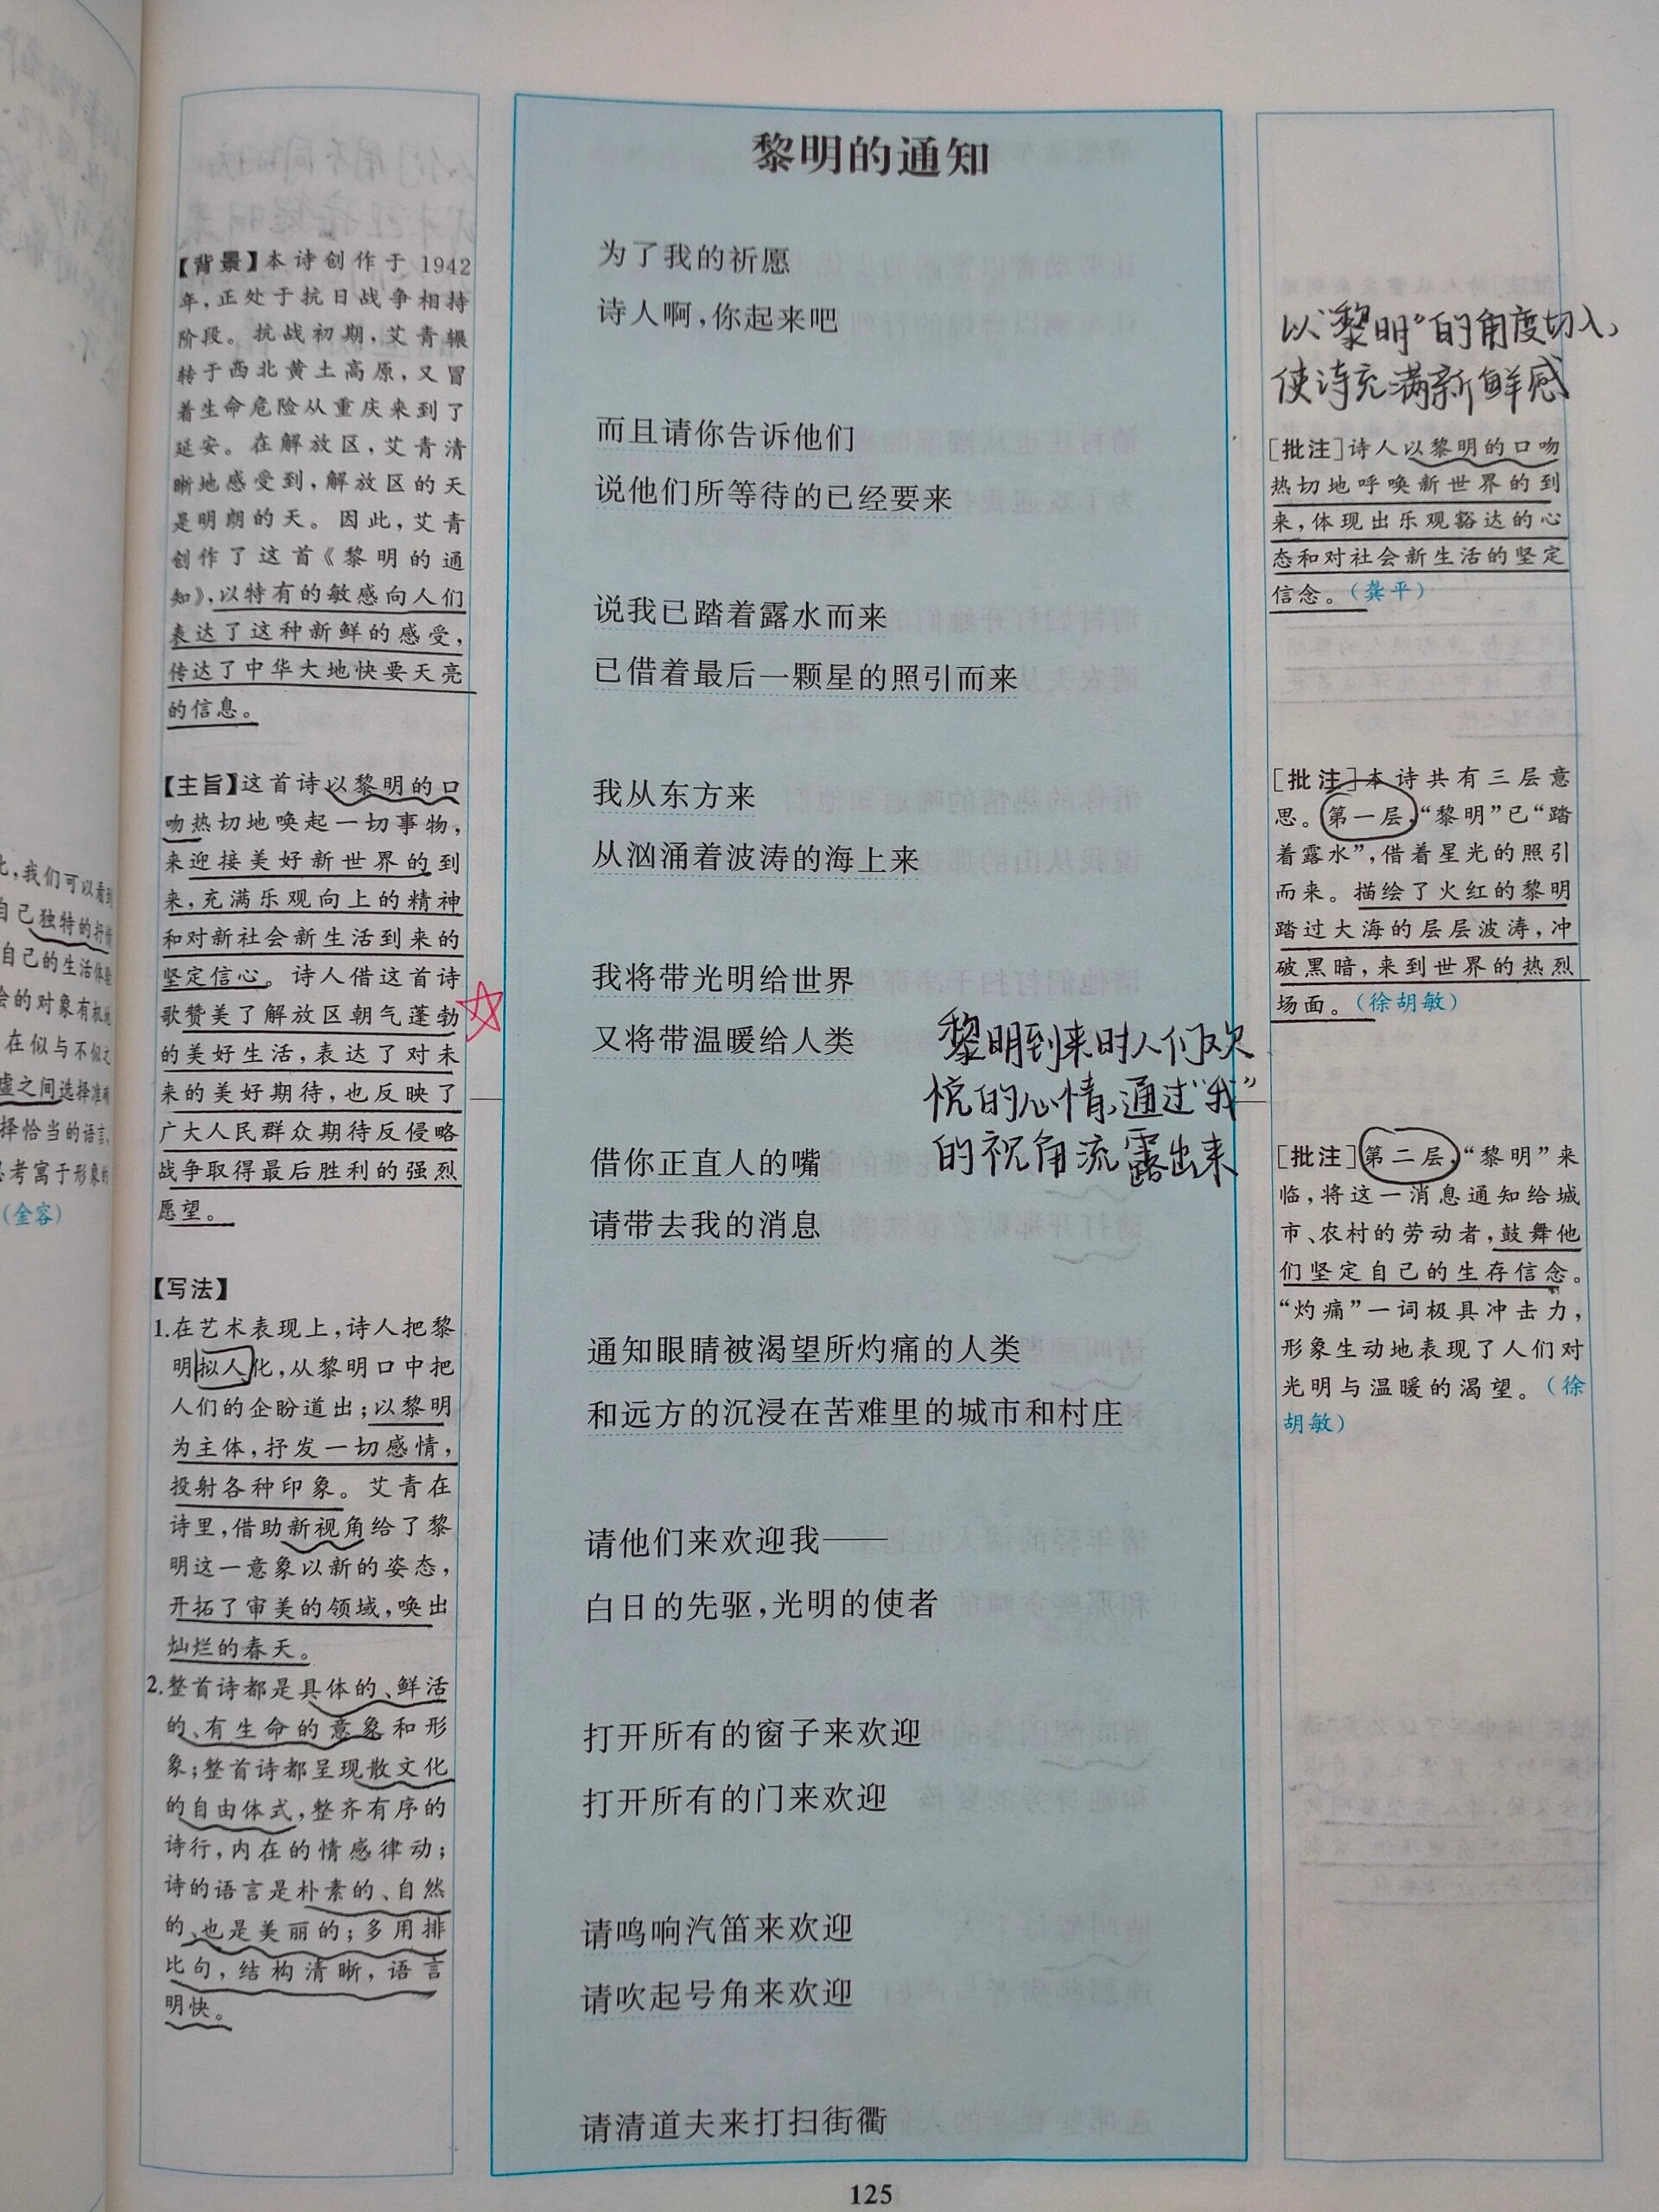 黎明的通知
【背景】本诗创作于 1942
年，正处于抗日战争相持
阶段。抗战初期，艾青辗
转于西北黄土高原，又冒
着生命危险从重庆来到了
延安。在解放区，艾青清
晰地感受到，解放区的天
是明朗的天。因此，艾青
创作了这首《黎明的通
知》，以特有的敏感向人们
表达了这种新鲜的感受，
传达了中华大地快要天亮
的信息。
【主旨】这首诗以黎明的口
吻热切地唤起一切事物，
来迎接美好新世界的到
来，充满乐观向上的精神
和对新社会新生活到来的
坚定信心。诗人借这首诗
歌赞美了解放区朝气蓬勃
的美好生活，表达了对未
来的美好期待，也反映了
广大人民群众期待反侵略
战争取得最后胜利的强烈
愿望。
【写法】
1.在艺术表现上，诗人把黎
明拟人化，从黎明口中把
人们的企盼道出；以黎明
为主体，抒发一切感情，
投射各种印象。艾青在
诗里，借助新视角给了黎
明这一意象以新的姿态，
开拓了审美的领域，唤出
灿烂的春天。
2.整首诗都是具体的、鲜活
的、有生命的意象和形
象；整首诗都呈现散文化
的自由体式，整齐有序的
诗行，内在的情感律动；
诗的语言是朴素的、自然
的、也是美丽的；多用排
比句，结构清晰，语言
明快。
为了我的祈愿
诗人啊，你起来吧
而且请你告诉他们
说他们所等待的已经要来
说我已踏着露水而来
已借着最后一颗星的照引而来
我从东方来
从汹涌着波涛的海上来
我将带光明给世界
又将带温暖给人类
借你正直人的嘴
请带去我的消息
通知眼睛被渴望所灼痛的人类
和远方的沉浸在苦难里的城市和村庄
请他们来欢迎我——
白日的先驱，光明的使者
打开所有的窗子来欢迎
打开所有的门来欢迎
请鸣响汽笛来欢迎
请吹起号角来欢迎
请清道夫来打扫街衢
黎明到来时人们欢
悦的心情，通过“我”
的视角流露出来
以“黎明”的角度切入，
使诗充满新鲜感
［批注］诗人以黎明的口吻
热切地呼唤新世界的到
来，体现出乐观豁达的心
态和对社会新生活的坚定
信念。（龚平）
［批注］本诗共有三层意
思。第一层，“黎明”已“踏
着露水”，借着星光的照引
而来。描绘了火红的黎明
踏过大海的层层波涛，冲
破黑暗，来到世界的热烈
场面。（徐胡敏）
［批注］第二层，“黎明”来
临，将这一消息通知给城
市、农村的劳动者，鼓舞他
们坚定自己的生存信念。
“灼痛”一词极具冲击力，
形象生动地表现了人们对
光明与温暖的渴望。（徐
胡敏）
，我们可以看到
自己独特的抒
自己的生活体验
会的对象有机地
在似与不似之
虚之间选择准确
择恰当的语言，
考寓于形象的
（金容）
125